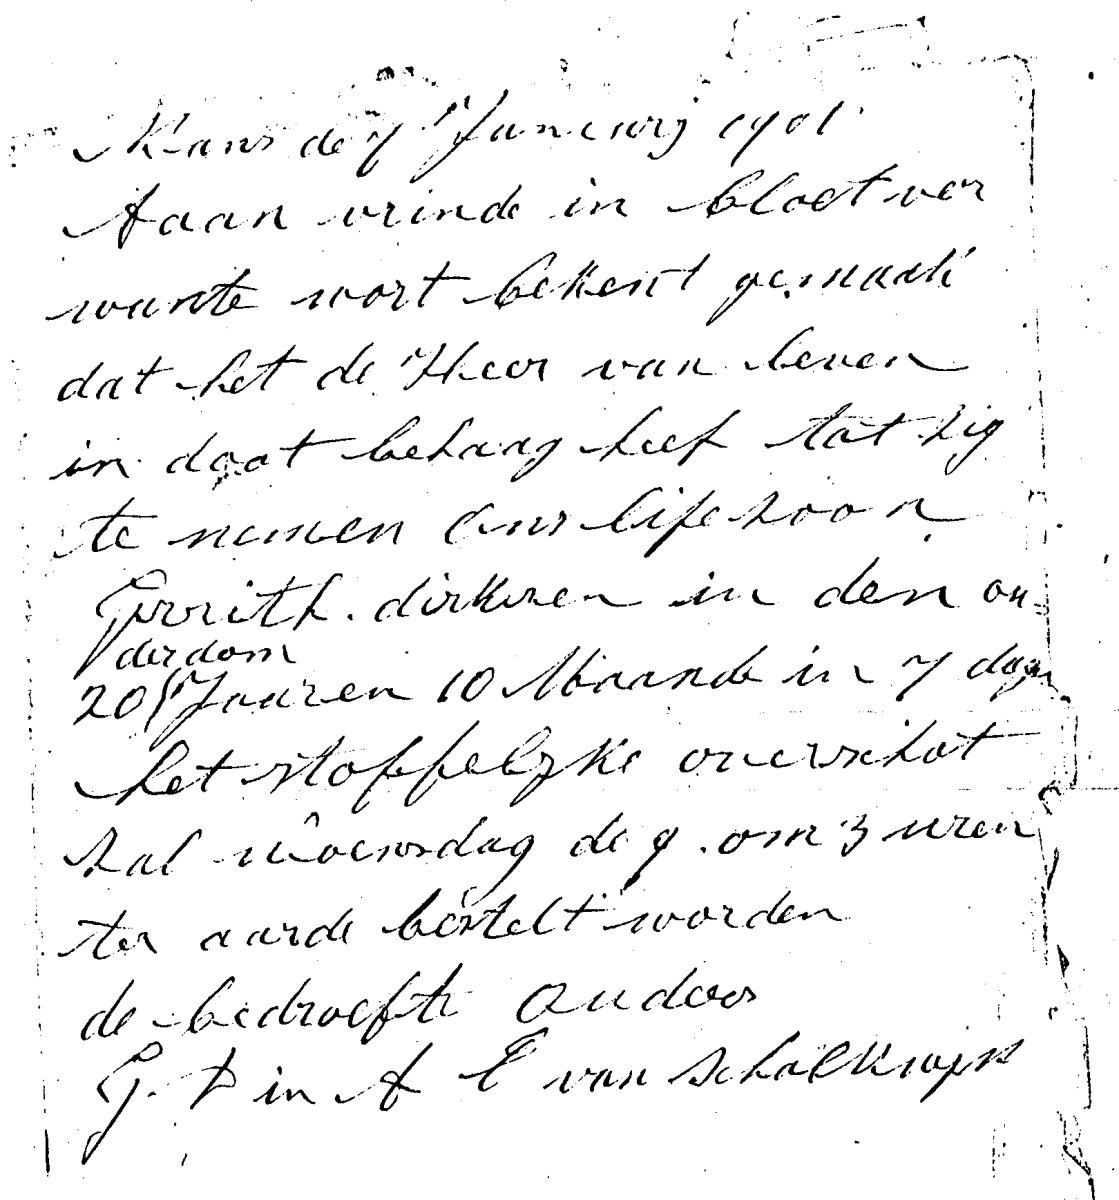 Kans de 7 Januarij 1901
Aaan vrinde in bloet ver
wante wort bekent gemaak
dat het de Heer van leven
in doot behaag heef tot zig
te nemen Ons lifezoon
Gerrith. dirksen in den ou-
derdom
20 Jaaren 10 Maande in 7 dagen
het stoffelyke overschot
zal woensdag de 9. om 3 uren
ter aarde bestelt worden
de bedroefte Oudors
G. D in A E van schalkwyk